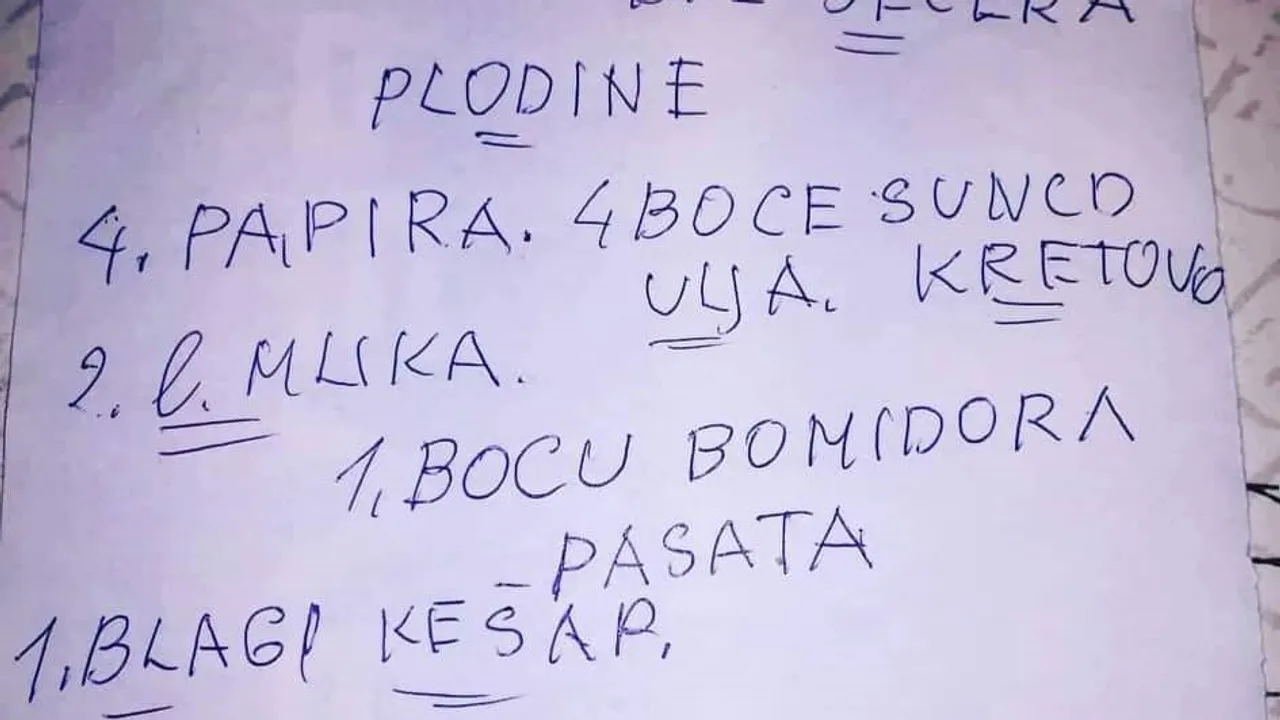 PLODINE
4. PAPIRA. 4 BOCE SUNCO
ULJA. KRETOVO
2. l. MLIKA.
1, BOCU BOMIDORA
- PASATA
1. BLAGI KEŠAP,